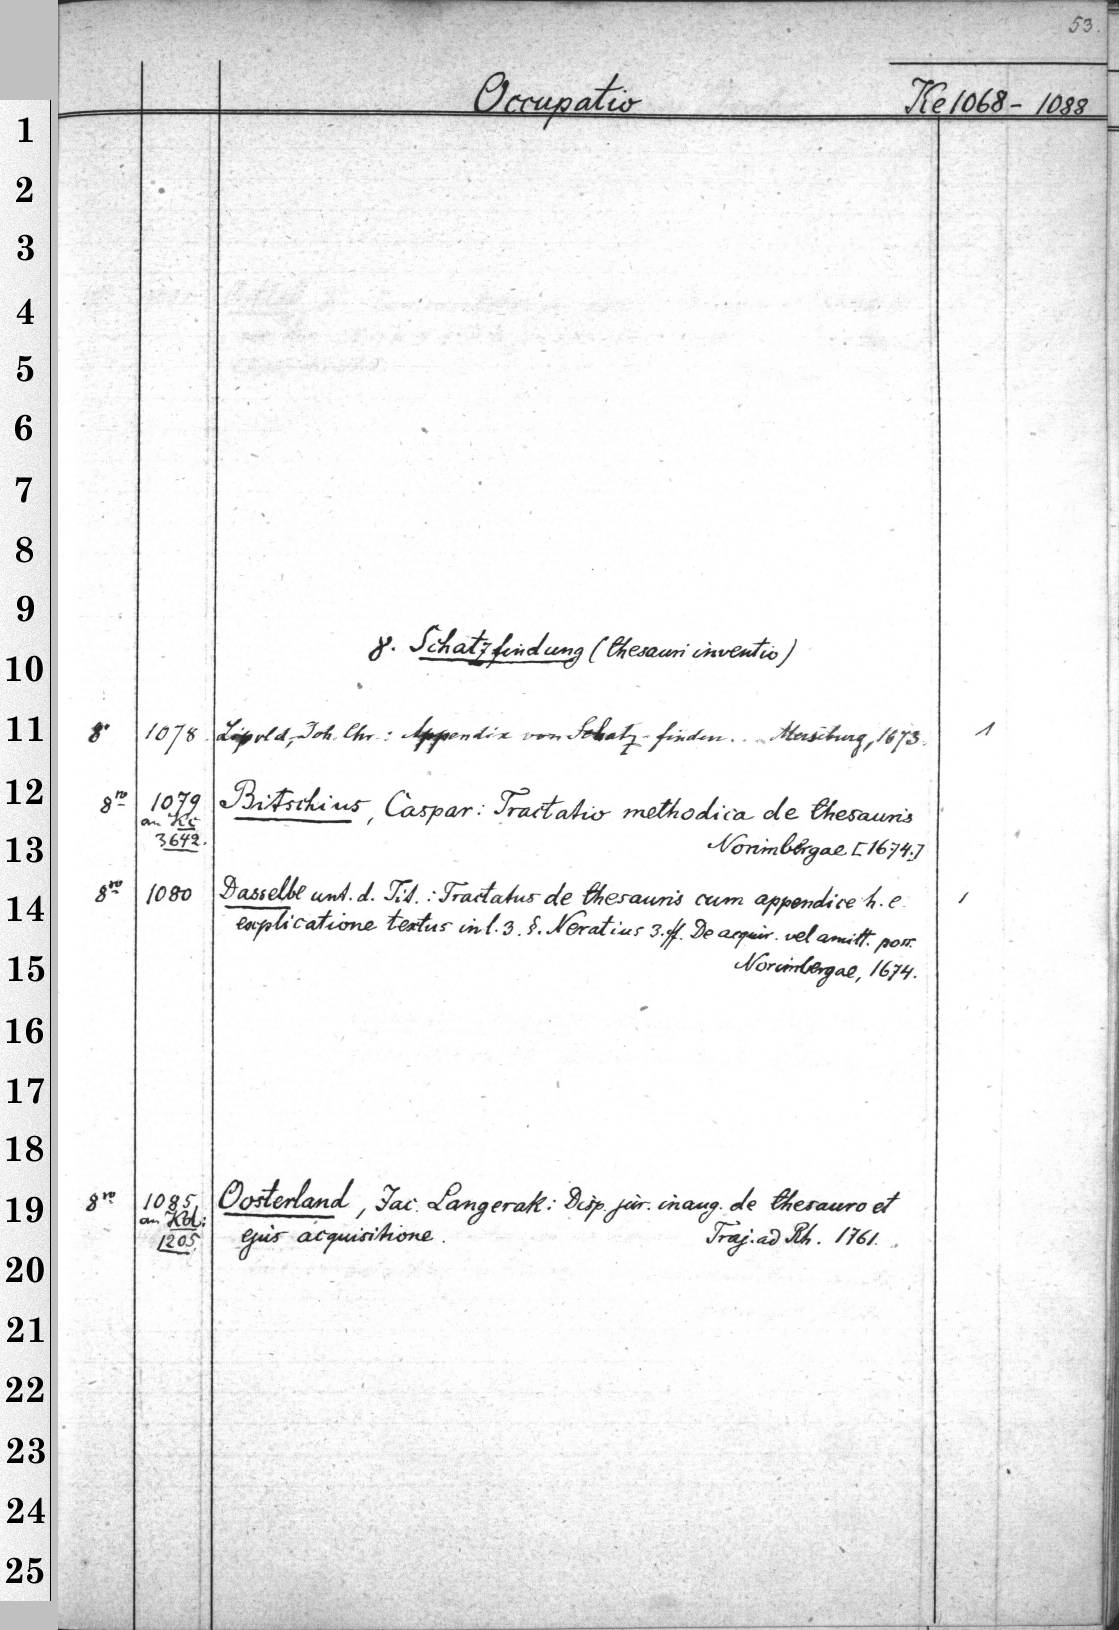 53.
Occupatio Ke 1068 - 1088
1
2
3
4
5
6
7
8
9
10
γ. Schatzfindung (thesauri inventio)
11
8° 1078. Lipold, Joh. Chr.: Appendix von Schatz-finden... Merseburg, 1673. 1
12
8ro 1079 Bitschius, Caspar: Tractatio methodica de thesauris
an Kc
3642.
13
Norimbergae [1674.]
14
8ro 1080 Dasselbe unt. d. Tit.: Tractatus de thesauris cum appendice h. e. 1
explicatione textus in l. 3. §. Neratius 3. ff. De acquir. vel amitt. poss.
15
Norimbergae, 1674.
16
17
18
19
8ro 1085 Oosterland, Jac. Langerak: Disp. jur. inaug. de thesauro et
an Kd:
1205.
ejus acquisitione. Traj. ad Rh. 1761.
20
21
22
23
24
25